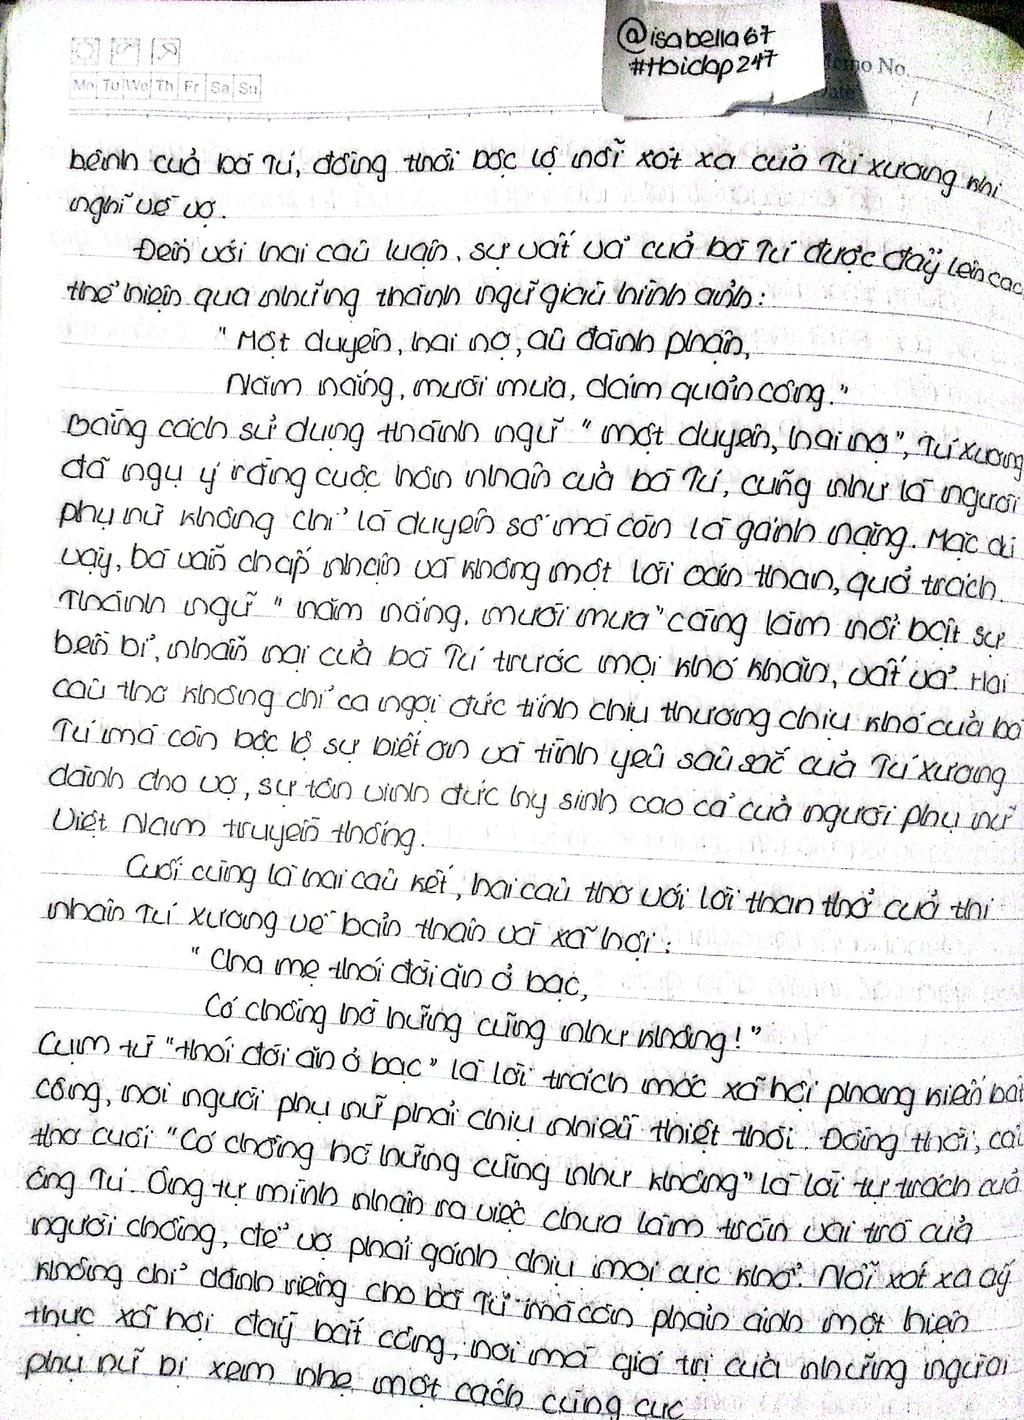 @isabella67
#Hoidap247
Memo No.
Mo Tu We Th Fr Sa Su
Date / /
bênh của bà Tú, đồng thời bộc lộ nỗi xót xa của Tú Xương khi
nghĩ về vợ.
Đến với hai câu luận, sự vất vả của bà Tú được đẩy lên cao
thể hiện qua những thành ngữ giàu hình ảnh:
"Một duyên, hai nợ, âu đành phận,
Năm nắng, mười mưa, dám quản công."
Bằng cách sử dụng thành ngữ "một duyên, hai nợ", Tú Xương
đã ngụ ý rằng cuộc hôn nhân của bà Tú, cũng như là người
phụ nữ không chỉ là duyên số mà còn là gánh nặng. Mặc dù
vậy, bà vẫn chấp nhận và không một lời oán than, quở trách.
Thành ngữ "năm nắng, mười mưa" càng làm nổi bật sự
bền bỉ, nhẫn nại của bà Tú trước mọi khó khăn, vất vả. Hai
câu thơ không chỉ ca ngợi đức tính chịu thương chịu khó của bà
Tú mà còn bộc lộ sự biết ơn và tình yêu sâu sắc của Tú Xương
dành cho vợ, sự tôn vinh đức hy sinh cao cả của người phụ nữ
Việt Nam truyền thống.
Cuối cùng là hai câu kết, hai câu thơ với lời than thở của thi
nhân Tú Xương về bản thân và xã hội:
"Cha mẹ thói đời ăn ở bạc,
Có chồng hờ hững cũng như không!"
Cụm từ "thói đời ăn ở bạc" là lời trách móc xã hội phong kiến bất
công, nơi người phụ nữ phải chịu nhiều thiệt thòi. Đồng thời, câu
thơ cuối "Có chồng hờ hững cũng như không" là lời tự trách của
ông Tú. Ông tự mình nhận ra việc chưa làm tròn vai trò của
người chồng, để vợ phải gánh chịu mọi cực khổ. Nỗi xót xa ấy
không chỉ dành riêng cho bà Tú mà còn phản ánh một hiện
thực xã hội đầy bất công, nơi mà giá trị của những người
phụ nữ bị xem nhẹ một cách cùng cực